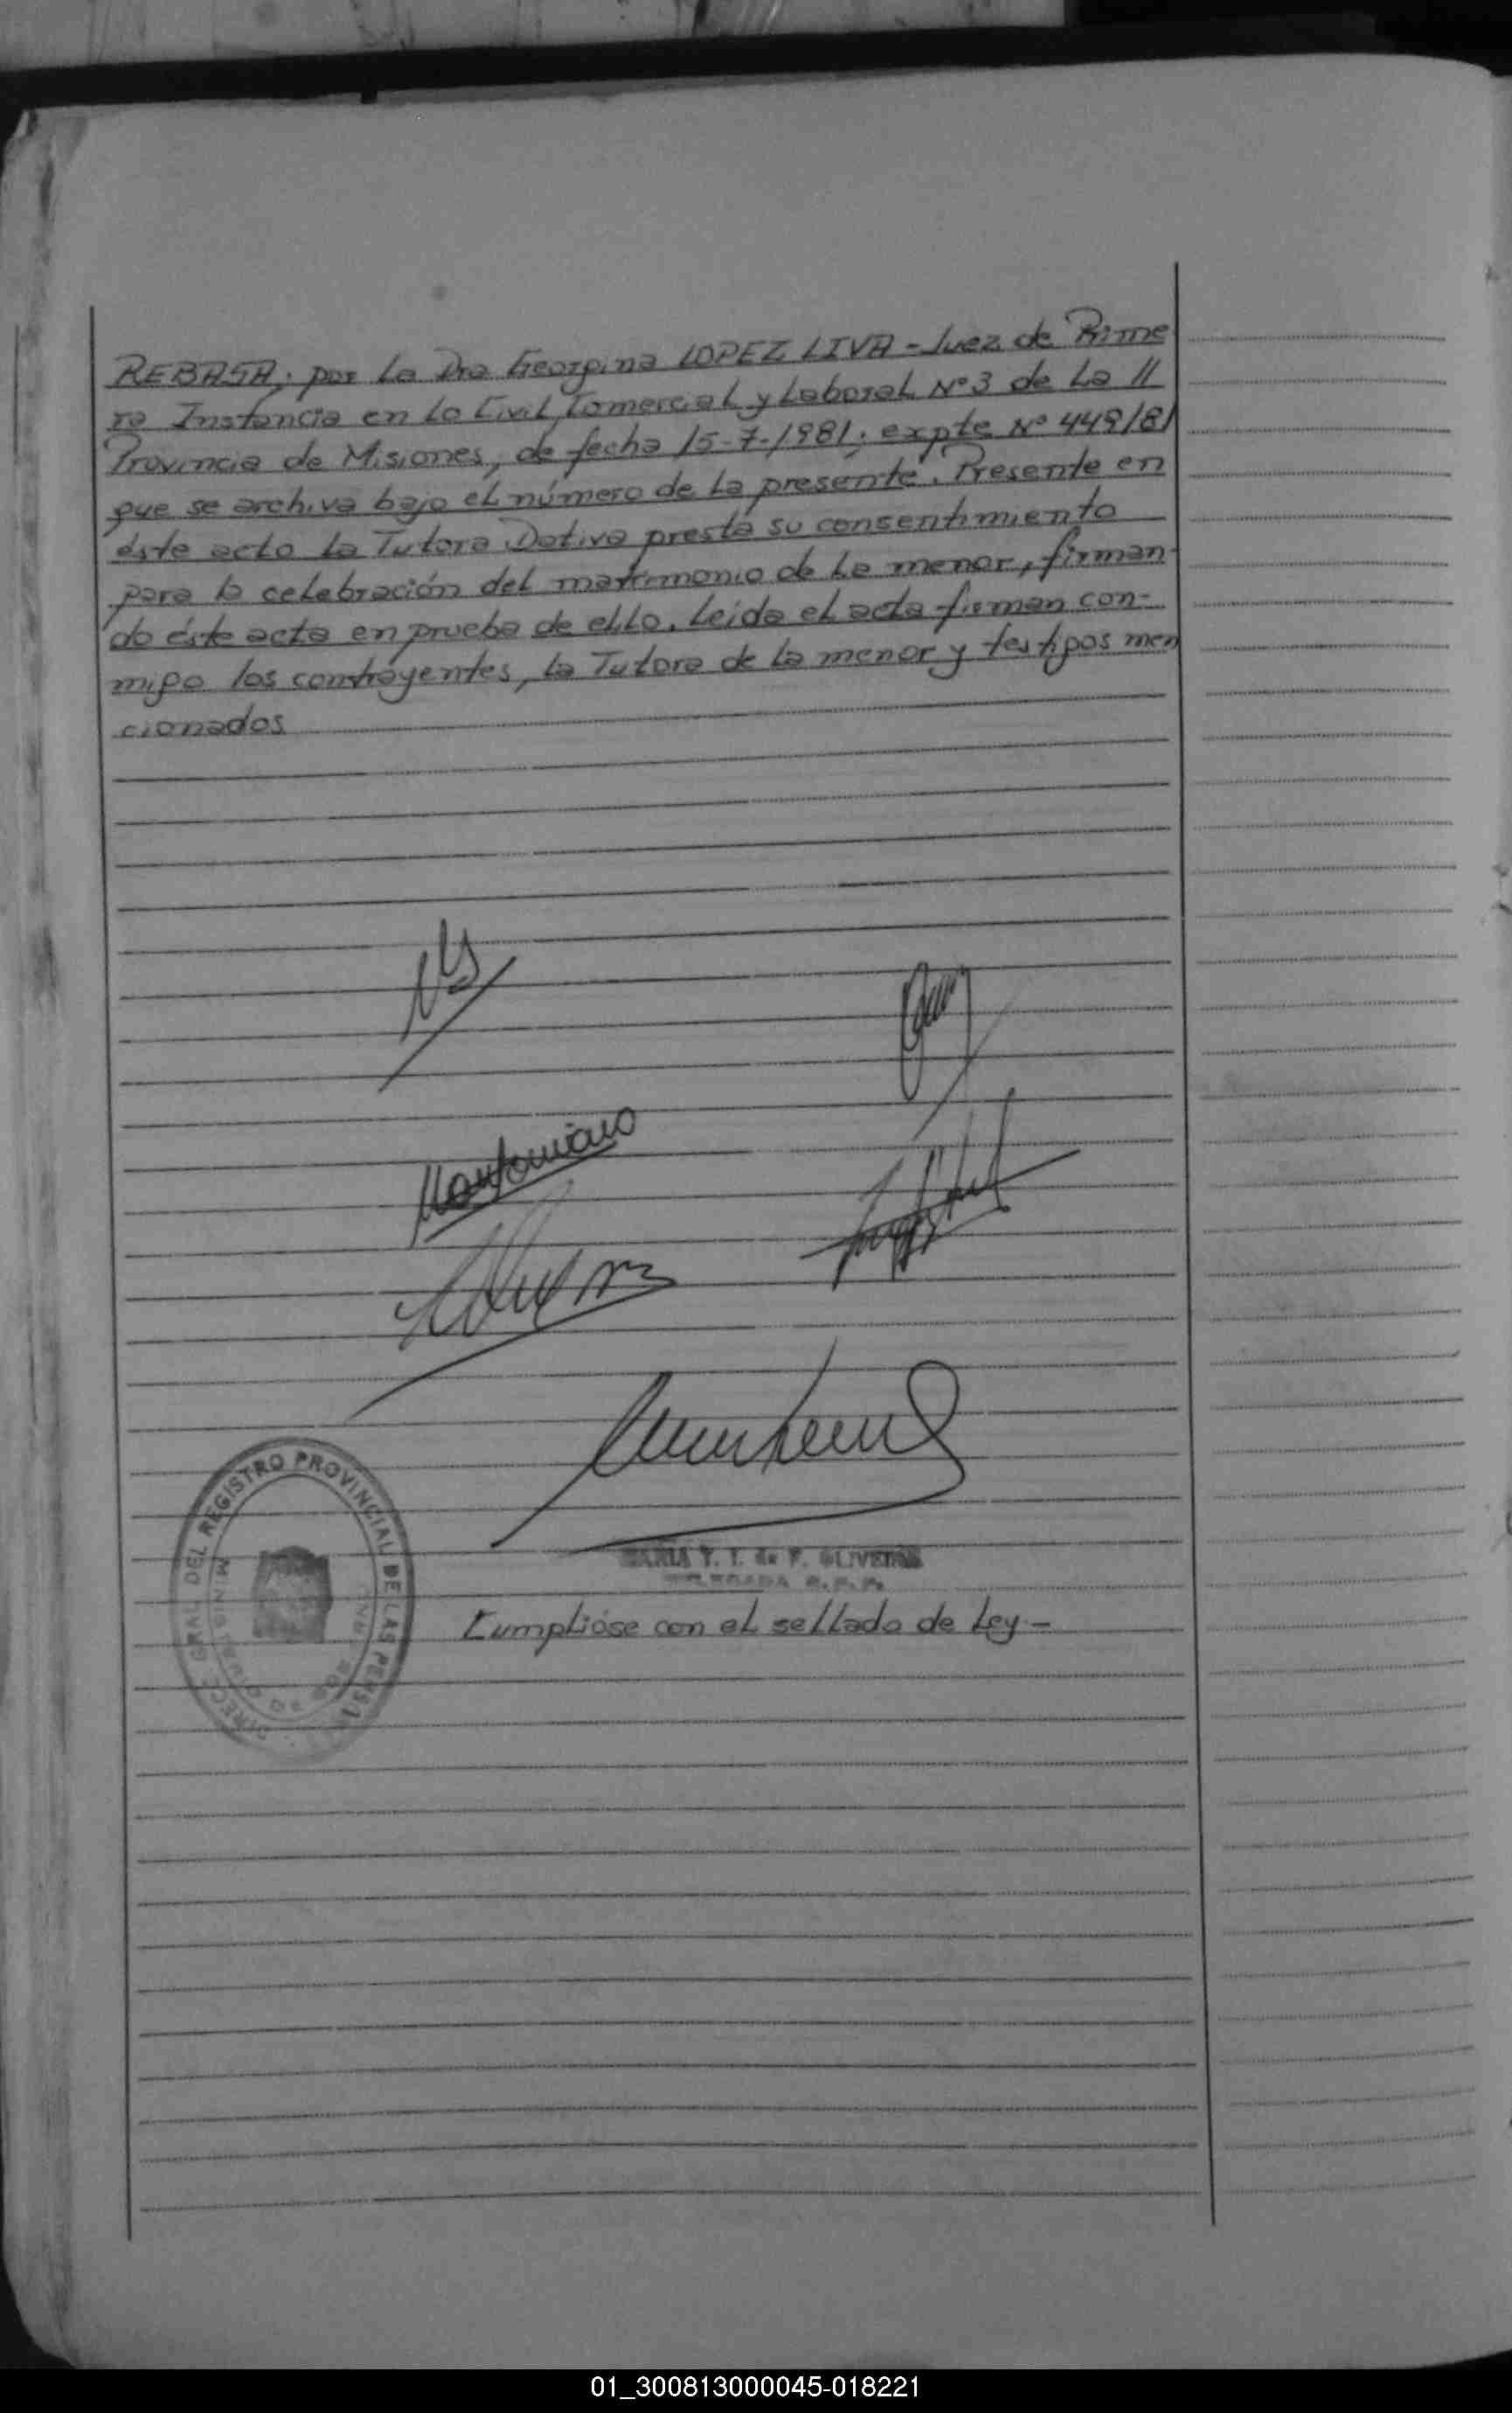 REBASA; por La Dra Georgina LOPEZ LIVA - Juez de Prime
ra Instancia en Lo Civil, Comercial y Laboral Nº 3 de La II
Provincia de Misiones, de fecha 15-7-1981; expte Nº 449/81
que se archiva bajo el número de La presente. Presente en
éste acto La Tutora Dativa presta su consentimiento
para la celebración del matrimonio de La menor, firman-
do éste acta en prueba de ello. Leida el acta firman con-
migo los contrayentes, la Tutora de La menor y testigos men
cionados
DIREC. GRAL DEL REGISTRO PROVINCIAL DE LAS PERSO
MARIA T. T. de F. OLIVEIRA
DELEGADA R.P.P.
Cumplióse con el sellado de Ley-
01_300813000045-018221